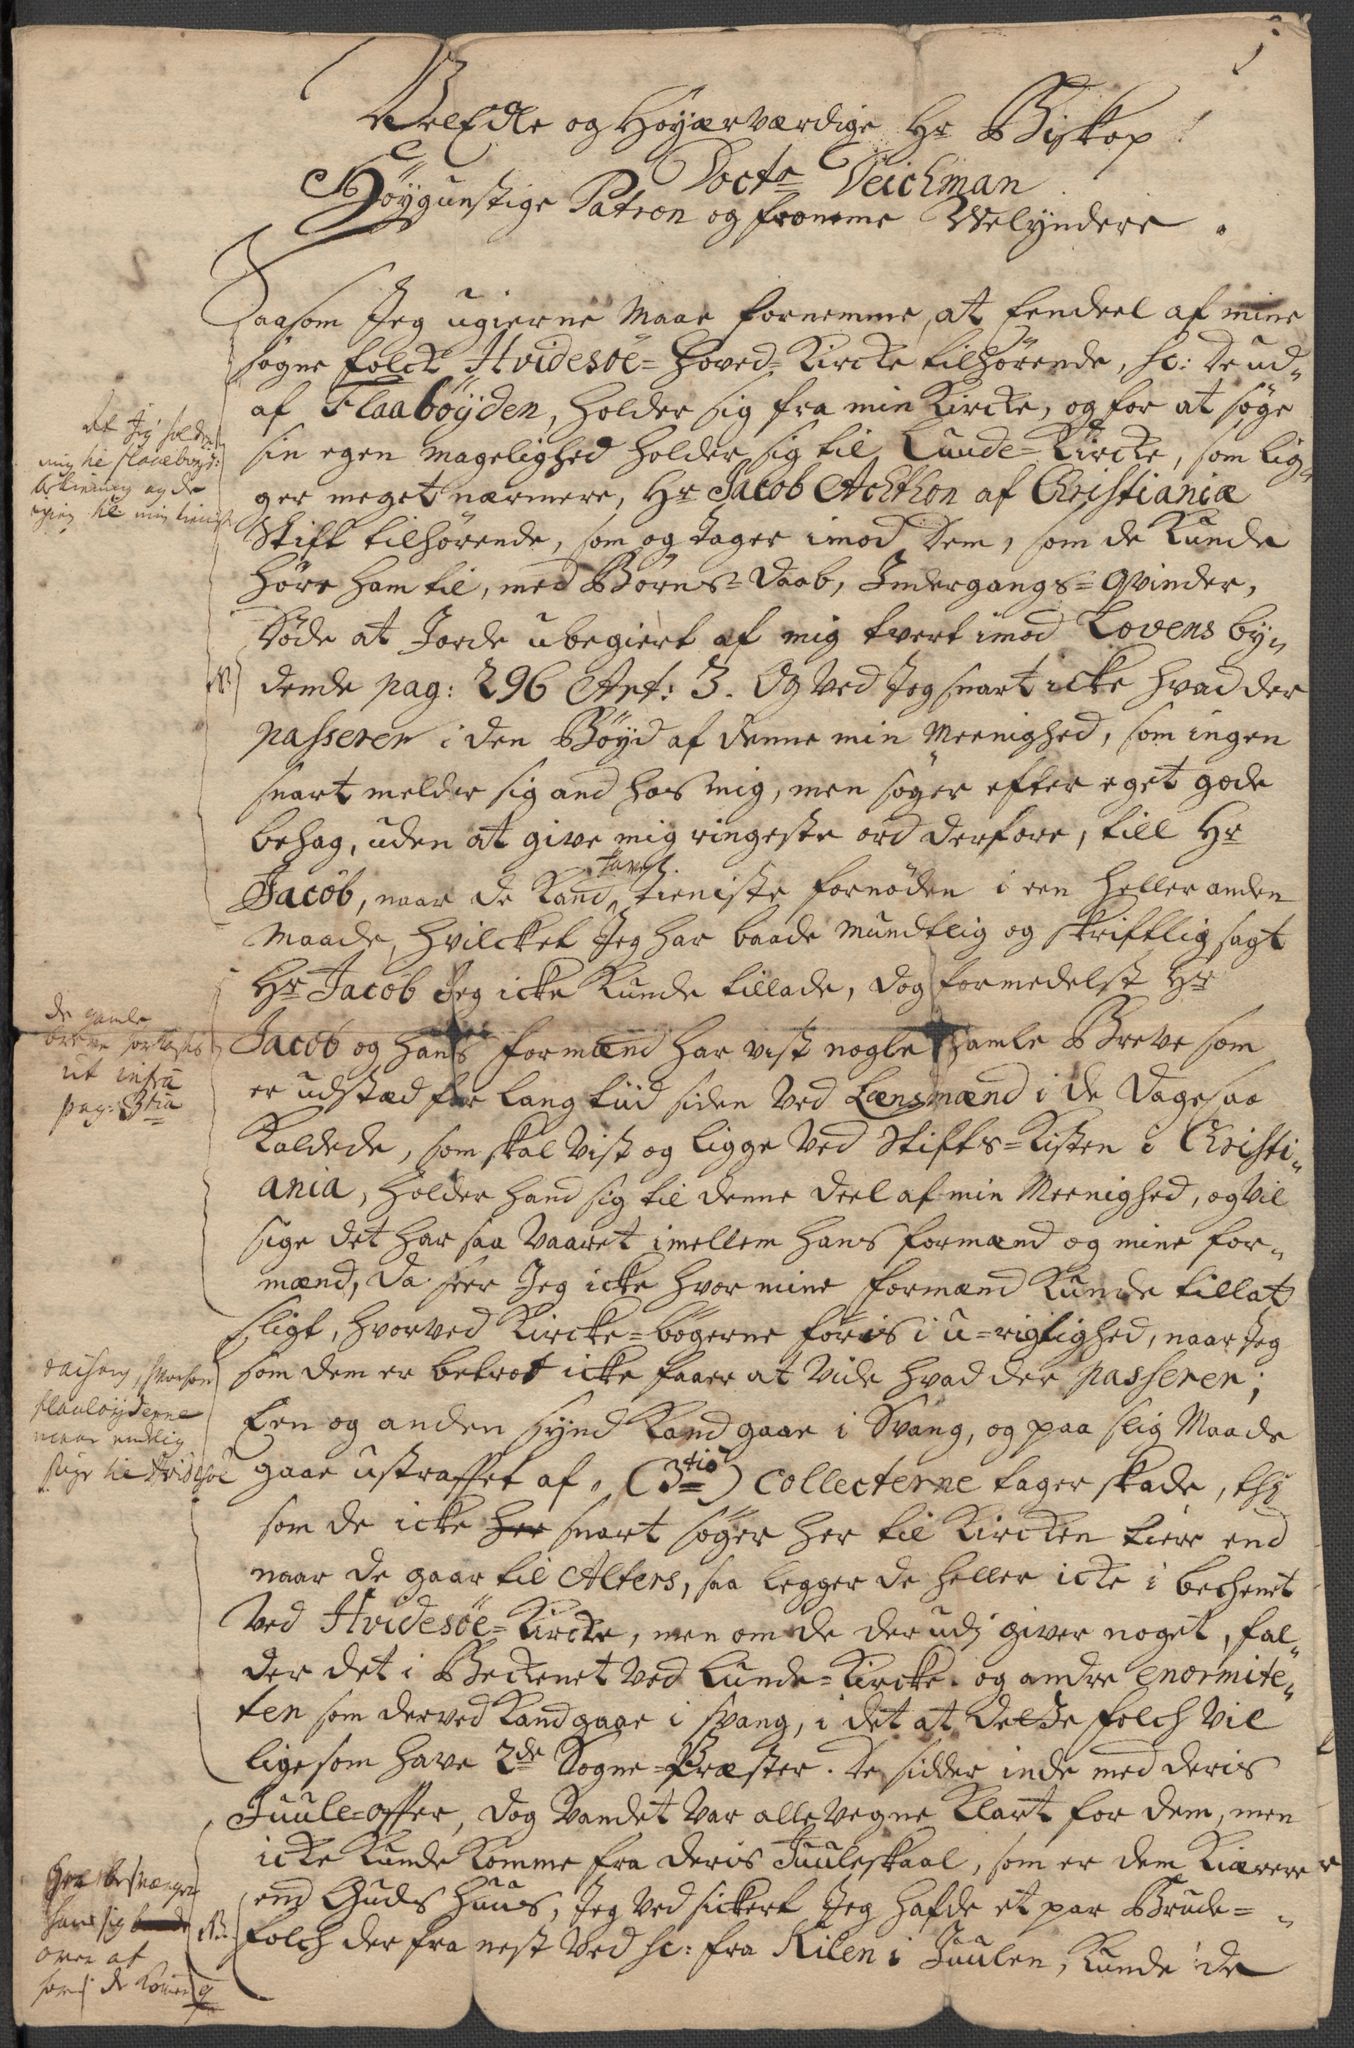 VelEdle og Höyærværdige Hr Biskop
Doctr Deichman
Höygunstige Patron og fromme Velyndere.
Saasom Jeg ugierne maae fornemme, at Eendeel af mine
sogne folck Hvidesöe-Hoved-Kircke tilhörende, sc: de ud-
af Flaabøyden, holder sig fra min Kircke, og for at söge
sin egen magelighed holder sig til Lunde-Kircke, som lig-
ger meget nærmere, Hr Jacob Achthon af Christianiæ
Stift tilhörende, som og tager imod dem, som de kunde
höre ham til, med Börns-daab, Indergangs-qvinder,
döde at Jorde ubegiert af mig tvert imod Lovens by-
dende pag: 296 Art: 3. Og ved Jeg snart icke hvad der
passerer i den Böyd af denne min Meenighed, som ingen
snart melder sig and hos mig, men söger efter eget gode
behag, uden at give mig ringeste ord derfore, till Hr
Jacob, naar de kand have tieniste fornöden i een heller anden
Maade, hvilcket Jeg har baade mundtlig og skriftlig sagt
Hr Jacob Jeg icke kunde tillade, dog formedelst Hr
Jacob og hans formænd har vist nogle gamle Breve som
er udstæd for lang tiid siden ved Lænsmænd i de dage saa
kaldede, som skal vist og ligge ved Stifts-kisten i Christi-
ania, holder hand sig til denne deel af min Meenighed, og vil
sige det har saa vaaret imellem hans formænd og mine for-
mænd, da seer Jeg icke hvor mine formænd kunde tillat
sligt, hvorved Kircke-bögerne föris i u-rigtighed, naar Jeg
som dem er betrot icke faaer at vide hvad der passerer;
Een og anden synd kand gaae i svang, og paa slig Maade
gaae ustraffet af, (3tio) collecterne tager skade, thi
som de icke her snart söger her til Kircken tiere end
naar de gaar til Alters, saa legger de heller icke i bechenet
ved Hvidesöe-Kircke, men om de derudj giver noget, fal-
der det i Beckenet ved Lunde-Kircke. og andre enormite-
ten som derved kand gaae i svang, i det at de folch vil
ligesom have 2de Sogne-Præster. De sidder inde med deris
Juule-offer, dog vandet var alle vegne klart for dem, men
icke kunde komme fra deris Juuleskaal, som er dem kiærere
end Guds huus, Jeg ved sickert Jeg hafde et par Brude-
folch der fra nest ved sc: fra Kilen i Juulen, kunde de
de gamle
breve
ut infra
pag: 3tia
flaabøyderne
maae endlig
söge til Hvidesöe
over at
de